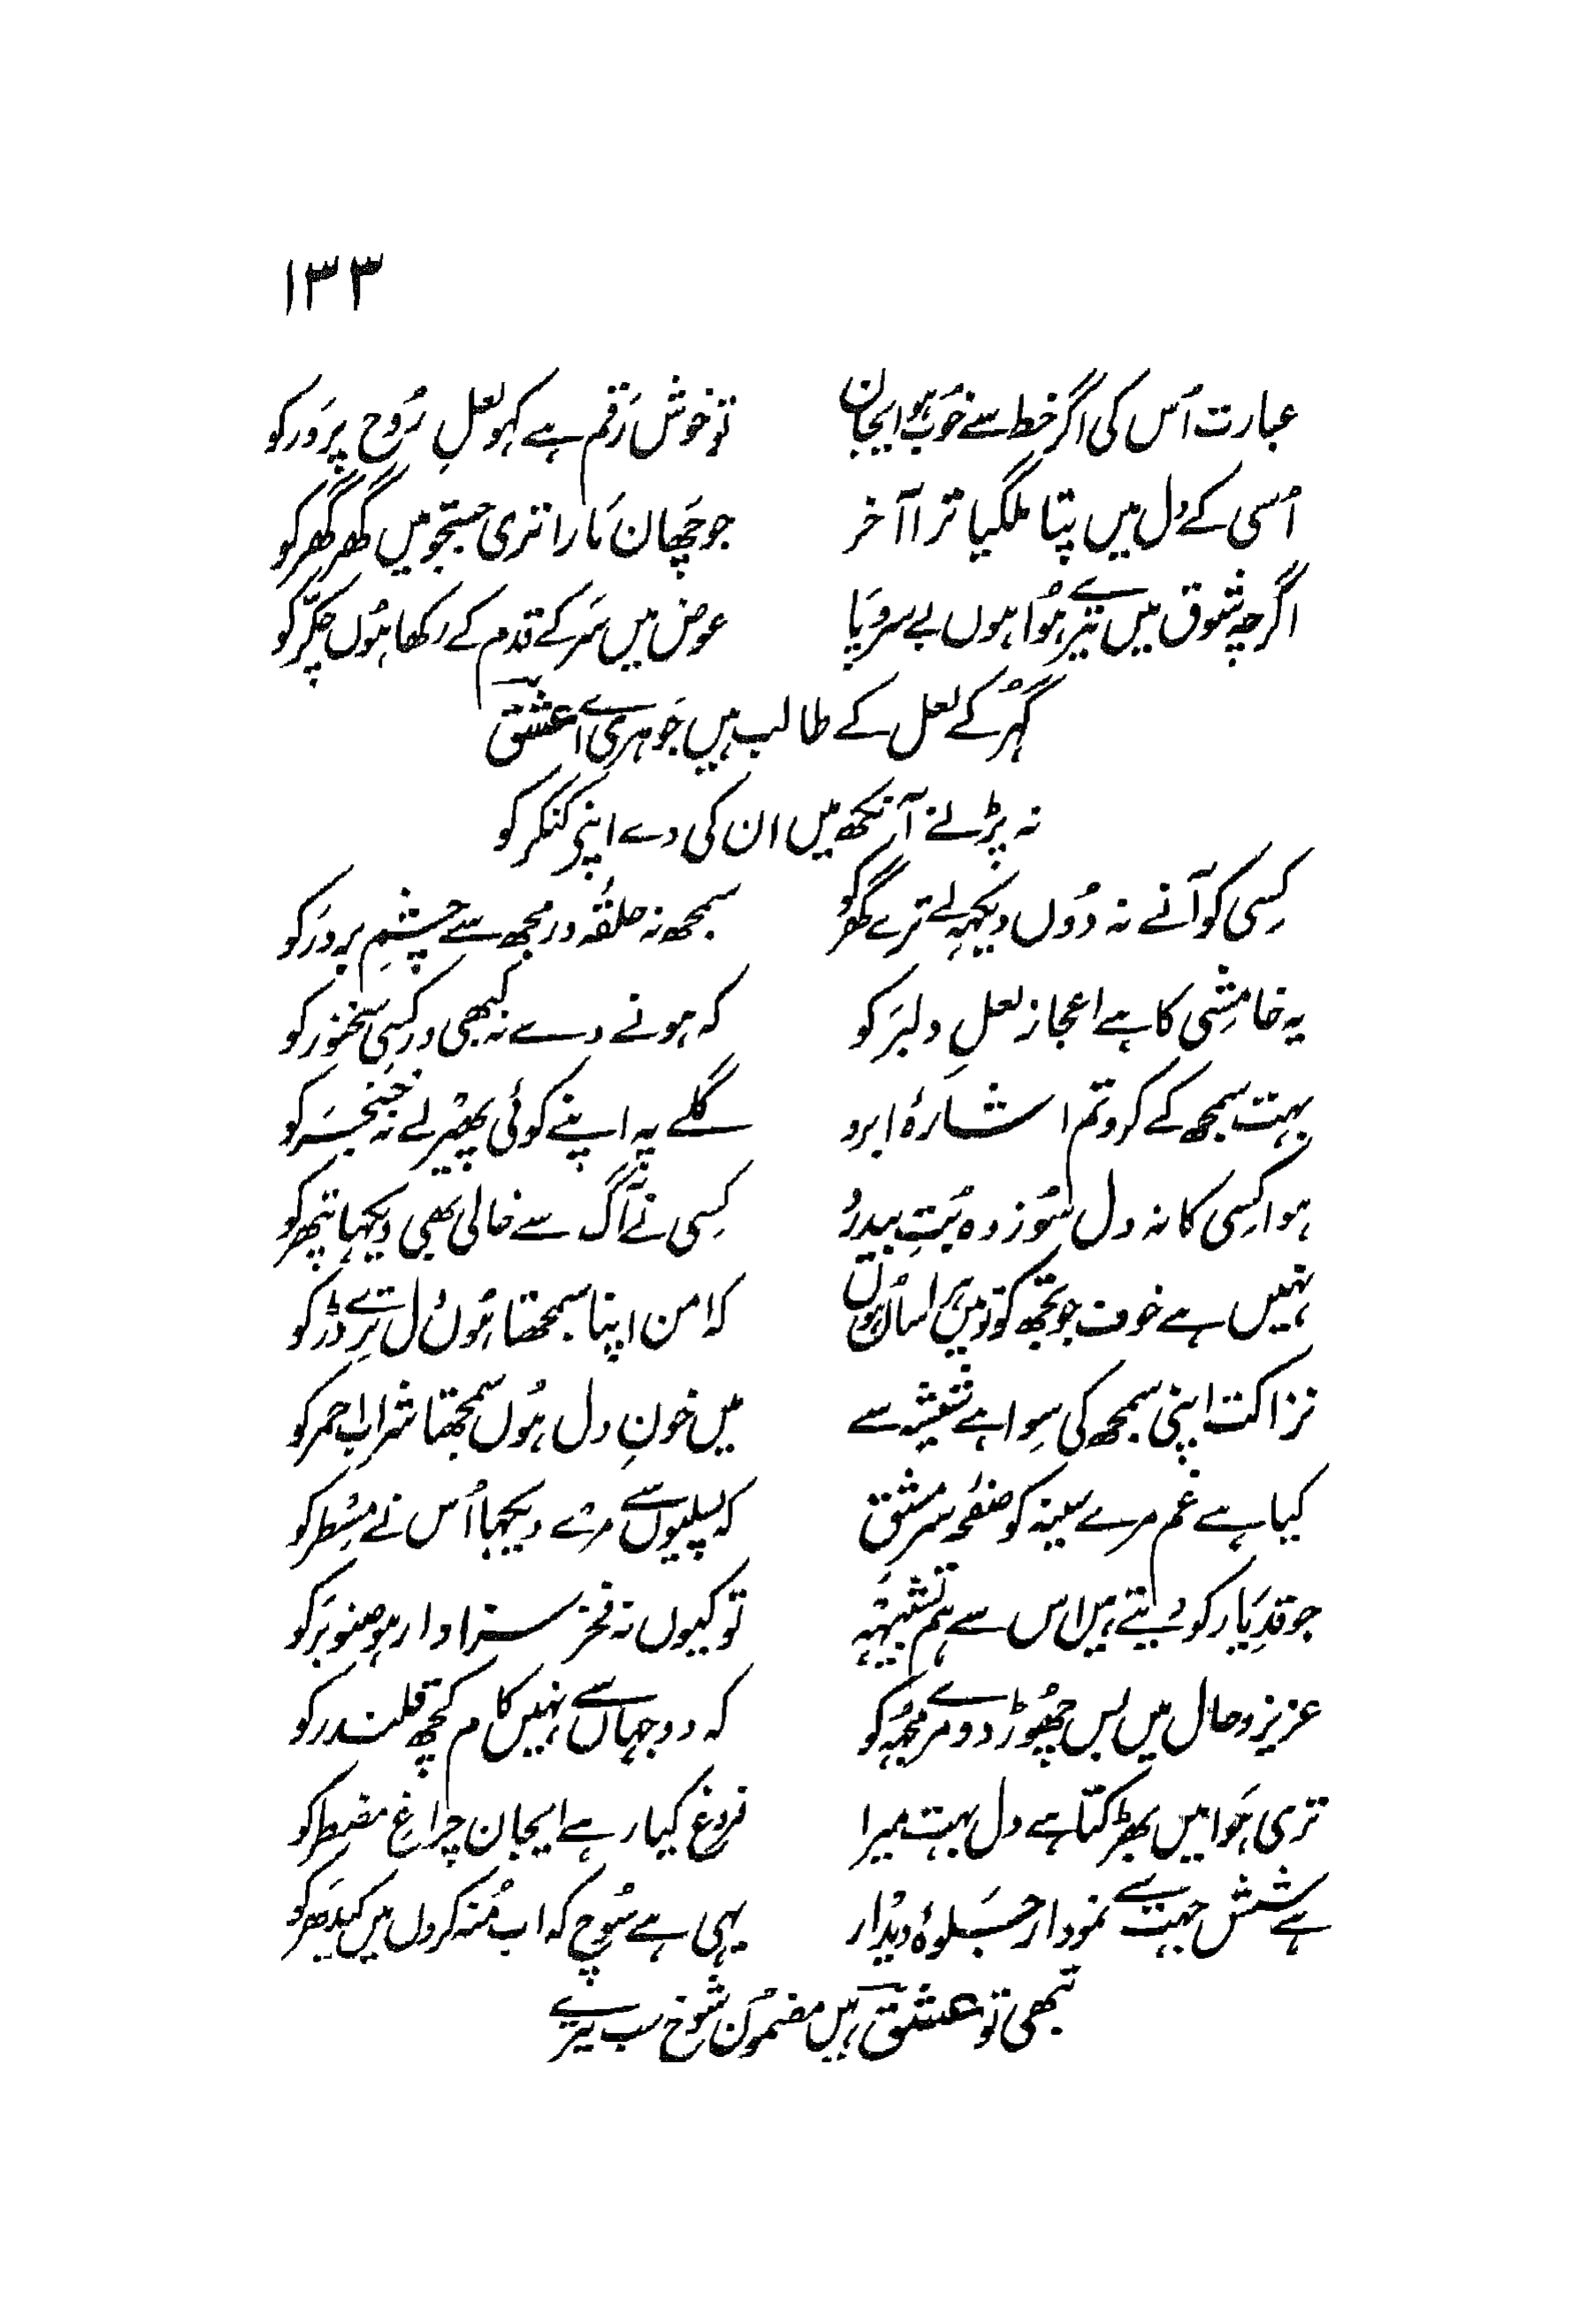 ۱۳۳
عبارت اُس کی اگر خط سے خُوب ہو ایجان
تو خوش رَقم ہے کہو لعلِ رُوح پرَور کو
اُسی کے دل میں پتا ملگیا ترا آخر
جو چَھان مَارا تری جستجو میں گھر گھر کو
اگرچہ شوق میں تیرے ہُوا ہوں بے سروپَا
عوض میں سَر کے قدم کے رکھا ہُوں چکّر کو
گہُر کے لعل کے طالب ہیں جَوہری اے عشق
نہ پڑنے آنکھ میں ان کی دے اپنی کنکر کو
کِسی کو آنے نہ دُوں دیکہنے ترے گھر کو
سمجھ نہ حلقۂ در مجھ سے چشمِ بر دَر کو
یہ خامشِی کا ہے اعجاز لعلِ دلبَر کو
کہ ہونے دے نہ کبھی در کسِی سخنوَر کو
بہت سمجھ کے کرو تم اشارَۂ ابرو
گلے پہ اپنے کوئی پھیْر لے نہ خَنجَر کو
ہوا کِسی کا نہ دل سُوز وہ بُتِ بیدرُ
کِسی نے آگ سے خالی بھی دیکہا پتھر کو
نہیں ہے خوف جو تجھ کو تو میں ہراساں ہوں
کہ امن اپنا سمجھتا ہُوں دل ترے ڈر کو
نزاکت اپنی سمجھ کی سِوا ہے شیشہ سے
میں خونِ دل ہُوں سمجھتا شراب احمر کو
کیا ہے غم مرے سینہ کو صفحۂ سرمشق
کہ پسلیوں سے مرے دیکہا اُس نے مسْطر کو
جو قدِ یَار کو دیتے ہیں اس سے ہم تشبیہَہ
تو کیوں نہ فخر سزا وار ہو صنوبَر کو
عزیزو حال میں بس چھُوڑ دو مرے مجہُہ کو
کہ دو جہاں سے نہیں کام کچھ قلندر کو
تری ہَوا میں بھڑکتا ہے دل بہت میرا
فروغ کیا رہے ایجان چراغِ مضطر کو
ہے شش جہت سے نمودار جَلوۂ دیدُار
یہی ہے سُوچ کہ اب مُنہ کروں میں کیدَھر کو
تبھی تو عشق ہیں مضمُون شُوخ سب تیرے